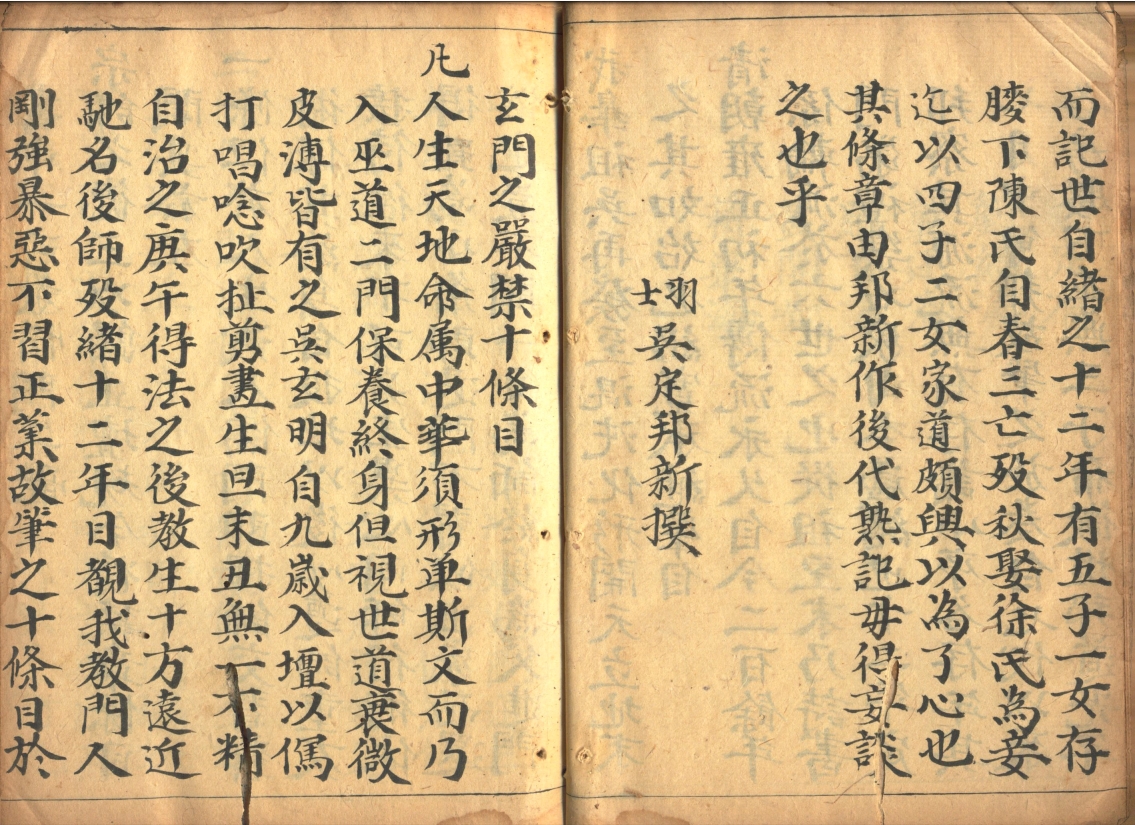 而記世自緒之十二年有五子一女存
膄下陳氏自春三亡殁秋娶徐氏為妾
迄以四子二女家道頗興以為了心也
其條章由邦新作後代熟記毋得妄談
之也乎
羽士吳定邦新撰
玄門之嚴禁十條目
凡人生天地命属中華須形单斯文而乃
入巫道二門保養終身但視世道衰微
皮溥皆有之吳玄明自九歲入壇以傌
打唱唸吹扯剪畫生旦末丑無一不精
自治之庚午得法之後教生十方遠近
馳名後師殁緒十二年目覩我教門人
剛強暴惡不習正業故筆之十條目於